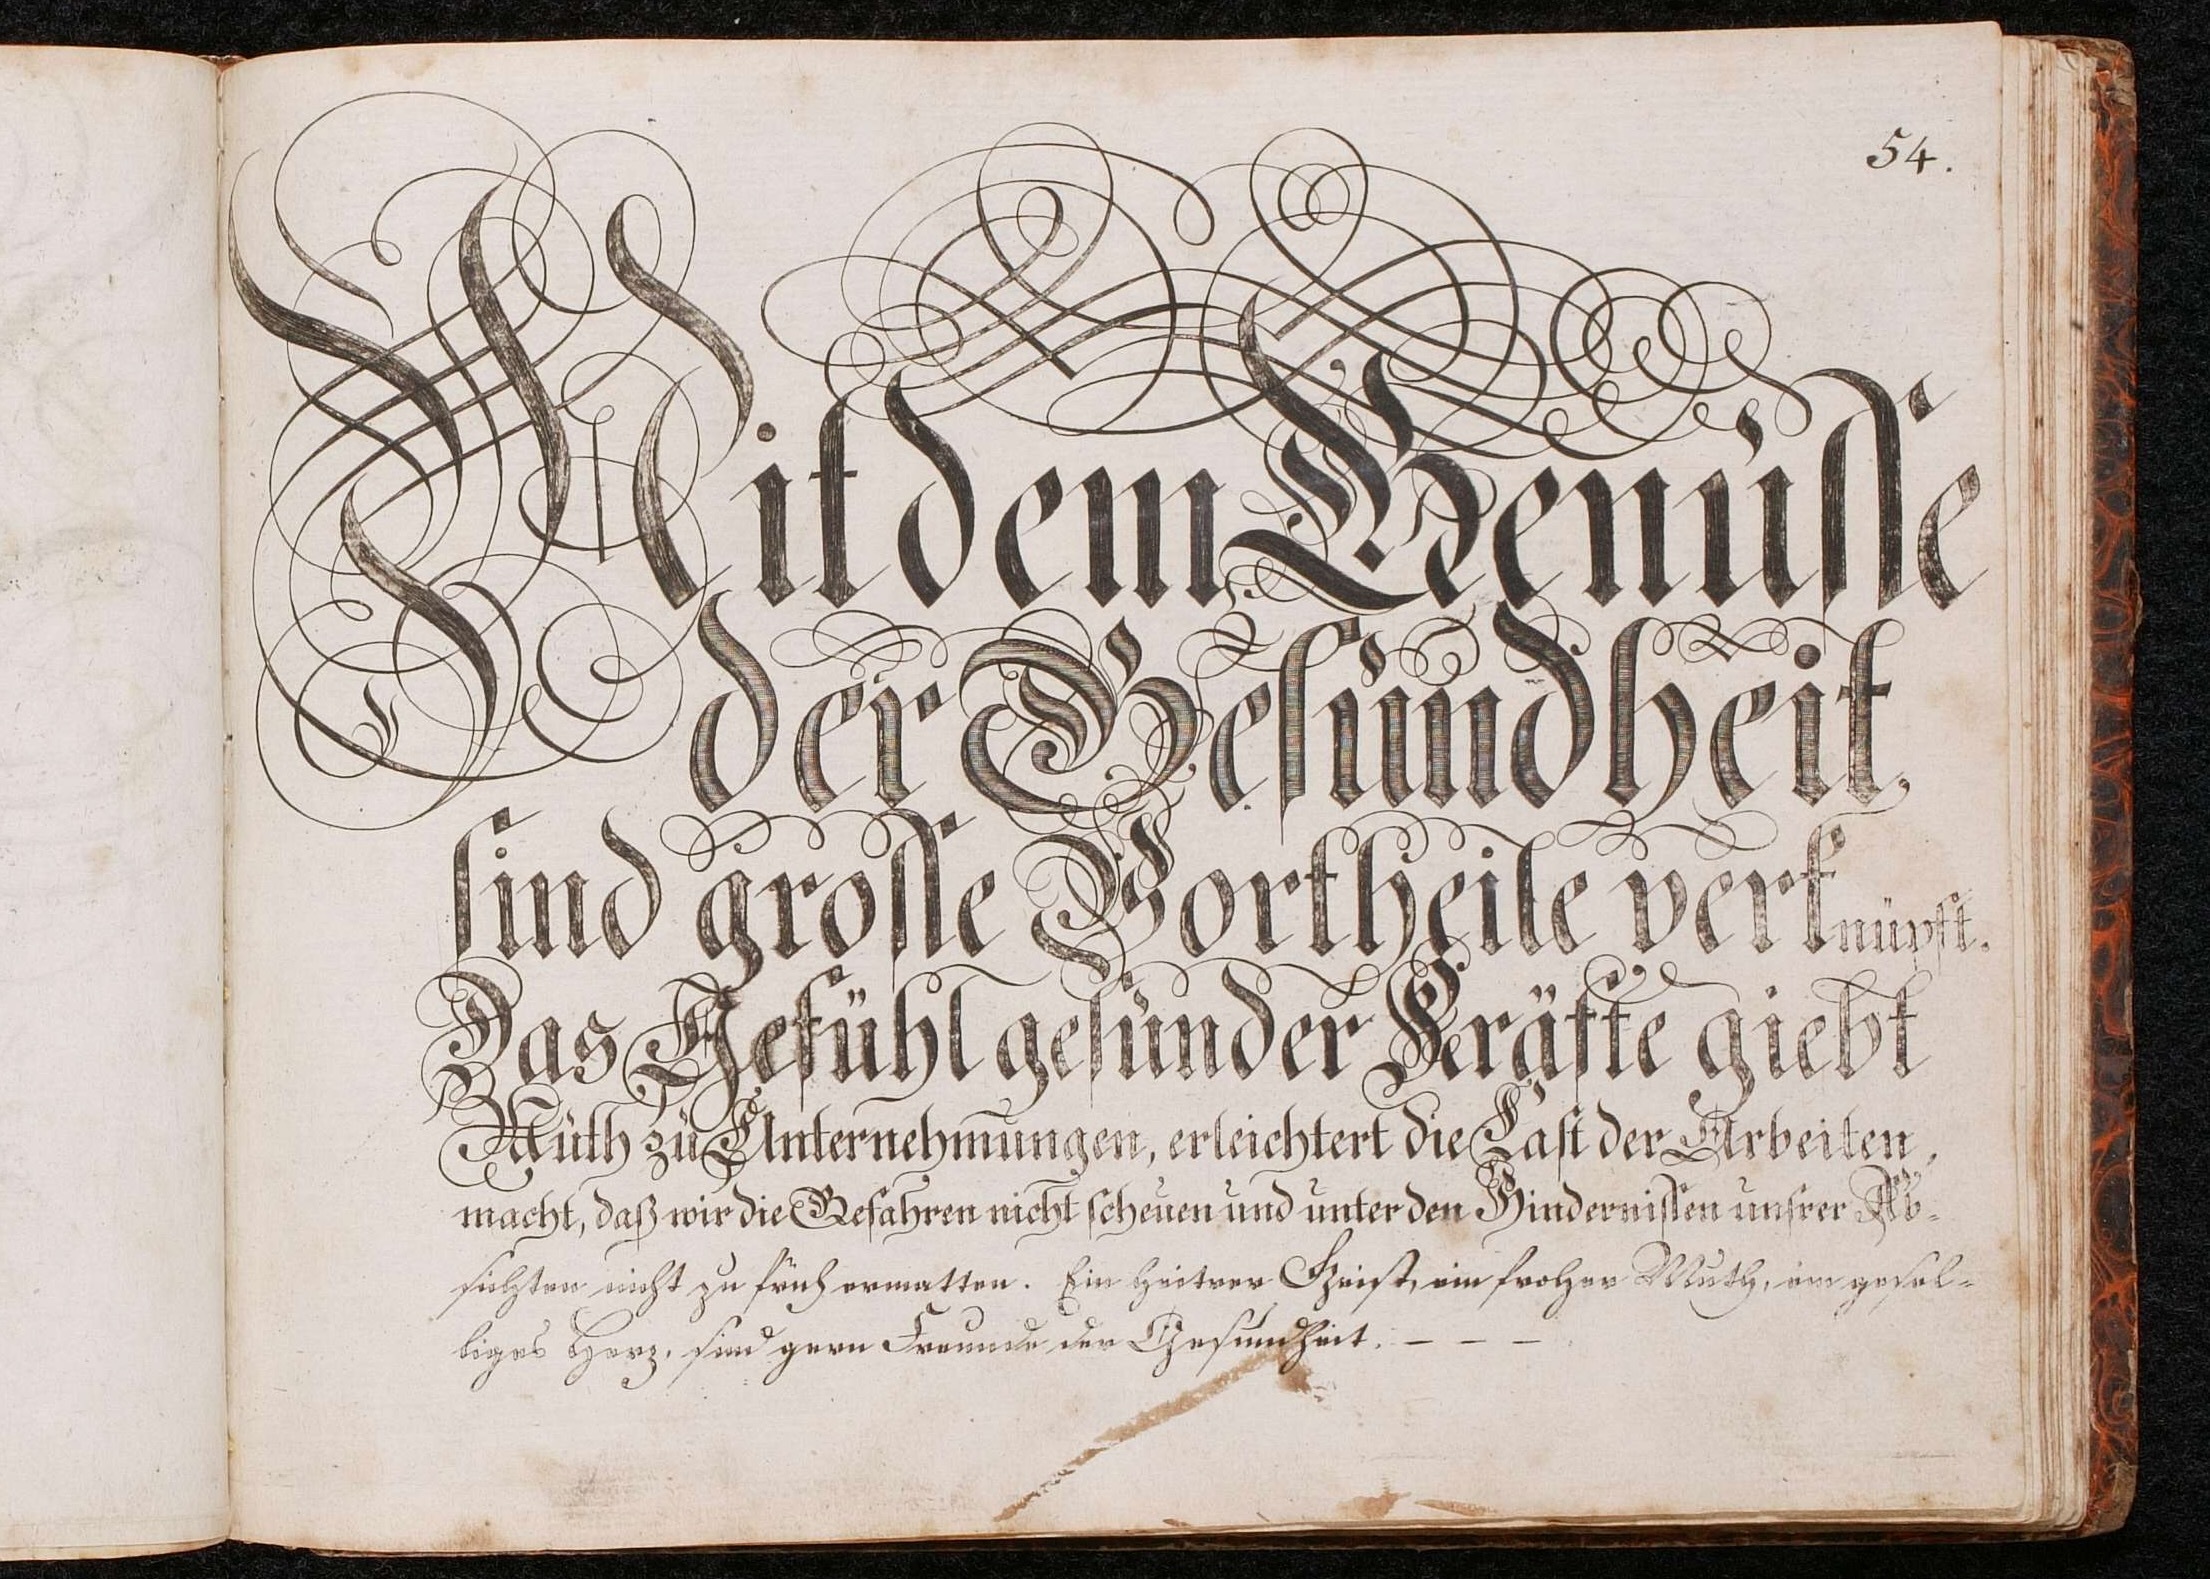 54.
Mit dem Genüsse
der Gesundheit
sind grosse Vortheile verknüpft.
Das Gefühl gesunder Kräfte giebt
Muth zu Unternehmungen, erleichtert die Last der Arbeiten,
macht, daß wir die Gefahren nicht scheuen und unter den Hindernissen unsrer Ab-
sichten nicht zu früh ermatten. Ein heitrer Geist, ein froher Muth, ein gesel-
liges Herz, sind gern Freunde der Gesundheit. - - -